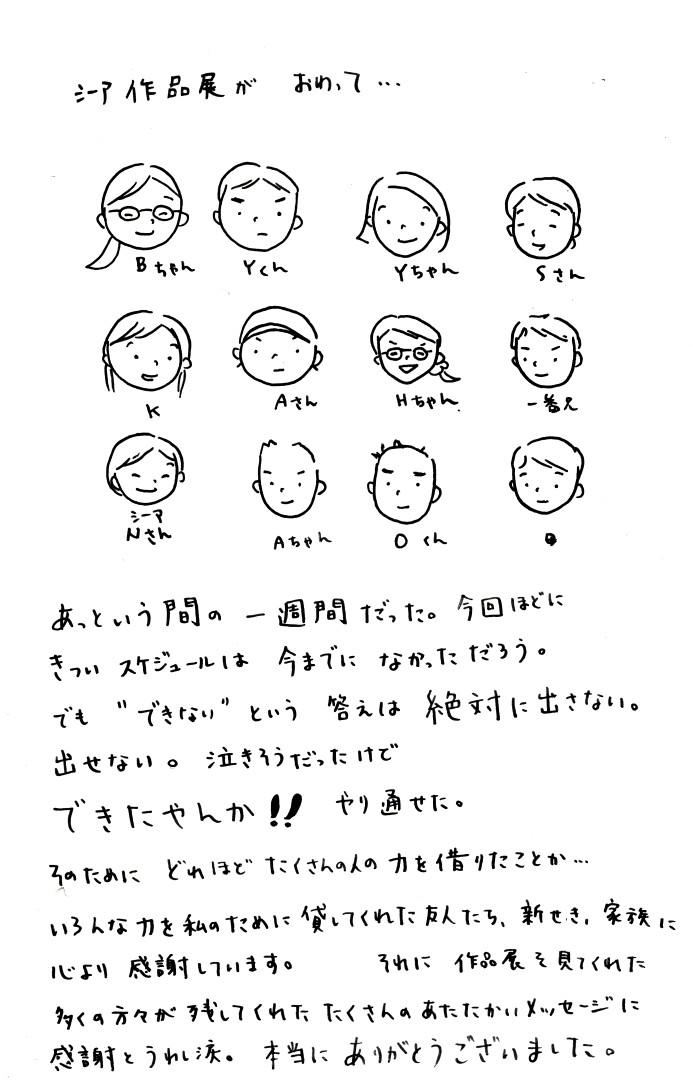 シーア 作品展が おわって…
Bちゃん Yくん Yちゃん Sさん
K Aさん Hちゃん 一番兄
シーア
Nさん Aちゃん Oくん
あっという間の 一週間だった。今回ほどに
きつい スケジュールは 今までに なかっただろう。
でも "できない" という 答えは 絶対に出さない。
出せない。泣きそうだったけど
できたやんか!! やり通せた。
そのために どれほど たくさんの人の 力を借りたことか…
いろんな力を私のために貸してくれた友人たち、新せき、家族に
心より 感謝しています。 それに 作品展を見てくれた
多くの方々が 残してくれた たくさんの あたたかい メッセージに
感謝と うれし涙。 本当に ありがとうございました。